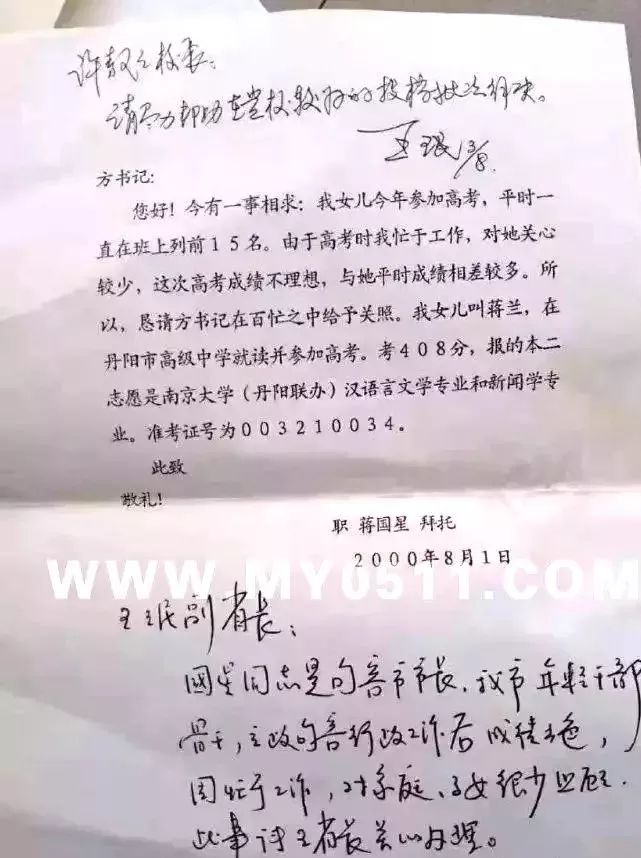 许敖敖校长：
请尽力帮助在贵校较好的投档批次解决。
王珉 3/8.
方书记:
您好！今有一事相求：我女儿今年参加高考，平时一
直在班上列前15名。由于高考时我忙于工作，对她关心
较少，这次高考成绩不理想，与她平时成绩相差较多。所
以，恳请方书记在百忙之中给予关照。我女儿叫蒋兰，在
丹阳市高级中学就读并参加高考。考408分，报的本二
志愿是南京大学（丹阳联办）汉语言文学专业和新闻学专
业。准考证号为003210034。
此致
敬礼！
职 蒋国星 拜托
2000年8月1日
WWW.MY0511.COM
王珉副省长：
國星同志是句容市市长，我市年轻干部
骨干，主政句容行政工作后成绩出色，
因忙于工作，对家庭、子女很少照顾.
此事请王省长关心办理。